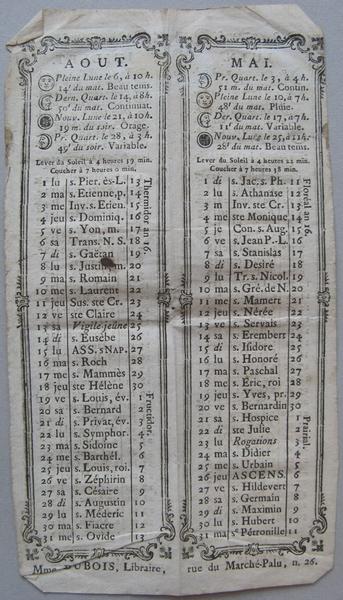 AOUT.
Pleine Lune le 6, à 10 h.
14′ du mat. Beau tems.
Dern. Quart. le 14, à 8h.
50′ du mat. Continuat.
Nouv. Lune le 21, à 10h.
19 m. du soir. Orage.
Pr. Quart. le 28, à 3 h.
49′ du soir. Variable.
Lever du Soleil à 4 heures 39 min.
Coucher à 7 heures 0 min.
Thermidor an 16.
1 lu s. Pier. ès-L. 13
2 ma s. Etienne, p. 14
3 me Inv. s. Etien. 15
4 jeu s. Dominiq. 16
5 ve s. Yon, m. 17
6 sa Trans. N. S. 18
7 di s. Gaëtan 19
8 lu s. Justin, m. 20
9 ma s. Romain 21
10 me s. Laurent 22
11 jeu Sus. ste Cr. 23
12 ve ste Claire 24
13 sa Vigile jeûne 25
14 di s. Eusèbe 26
15 lu ASS. s NAP. 27
16 ma s. Roch 28
17 me s. Mammès 29
18 jeu ste Hélène 30
Fructidor.
19 ve s. Louis, év. 1
20 sa s. Bernard 2
21 di s. Privat, év. 3
22 lu s. Symphor. 4
23 ma s. Sidoine 5
24 me s. Barthél. 6
25 jeu s. Louis, roi. 7
26 ve s. Zéphirin 8
27 sa s. Césaire 9
28 di s. Augustin 10
29 lu s. Méderic 11
30 ma s. Fiacre 12
31 me s. Ovide 13
MAI.
Pr. Quart. le 3, à 4 h.
51 m. du mat. Contin.
Pleine Lune le 10, à 7h.
48′ du mat. Pluie.
Der. Quart. le 17, à 7h.
11′ du mat. Variable.
Nouv. Lune le 25, à 11h.
28′ du mat. Beau tems.
Lever du Soleil à 4 heures 22 min.
Coucher à 7 heures 38 min.
Floréal an 16.
1 di s. Jac. s. Ph. 11
2 lu s. Athanase 12
3 m Inv. ste Cr. 13
4 me ste Monique 14
5 je Con. s. Aug. 15
6 ve s. Jean P.-L. 16
7 sa s. Stanislas 17
8 di s. Desiré 18
9 lu Tr. s. Nicol. 19
10 ma s. Gré. de N. 20
11 me s. Mamert 21
12 jeu s. Nérée 22
13 ve s. Servais 23
14 sa s. Erembert 24
15 di s. Isidore 25
16 lu s. Honoré 26
17 ma s. Paschal 27
18 me s. Eric, roi 28
19 jeu s. Yves, pr. 29
20 ve s. Bernardin 30
Prairial.
21 sa s. Hospice 1
22 di ste Julie 2
23 lu Rogations 3
24 ma s. Didier 4
25 me s. Urbain 5
26 jeu ASCENS. 6
27 ve s. Hildevert 7
28 sa s. Germain 8
29 di s. Maximin 9
30 lu s. Hubert 10
31 ma ste Pétronille 11
Mme DUBOIS, Libraire, rue du Marché-Palu, n. 26.